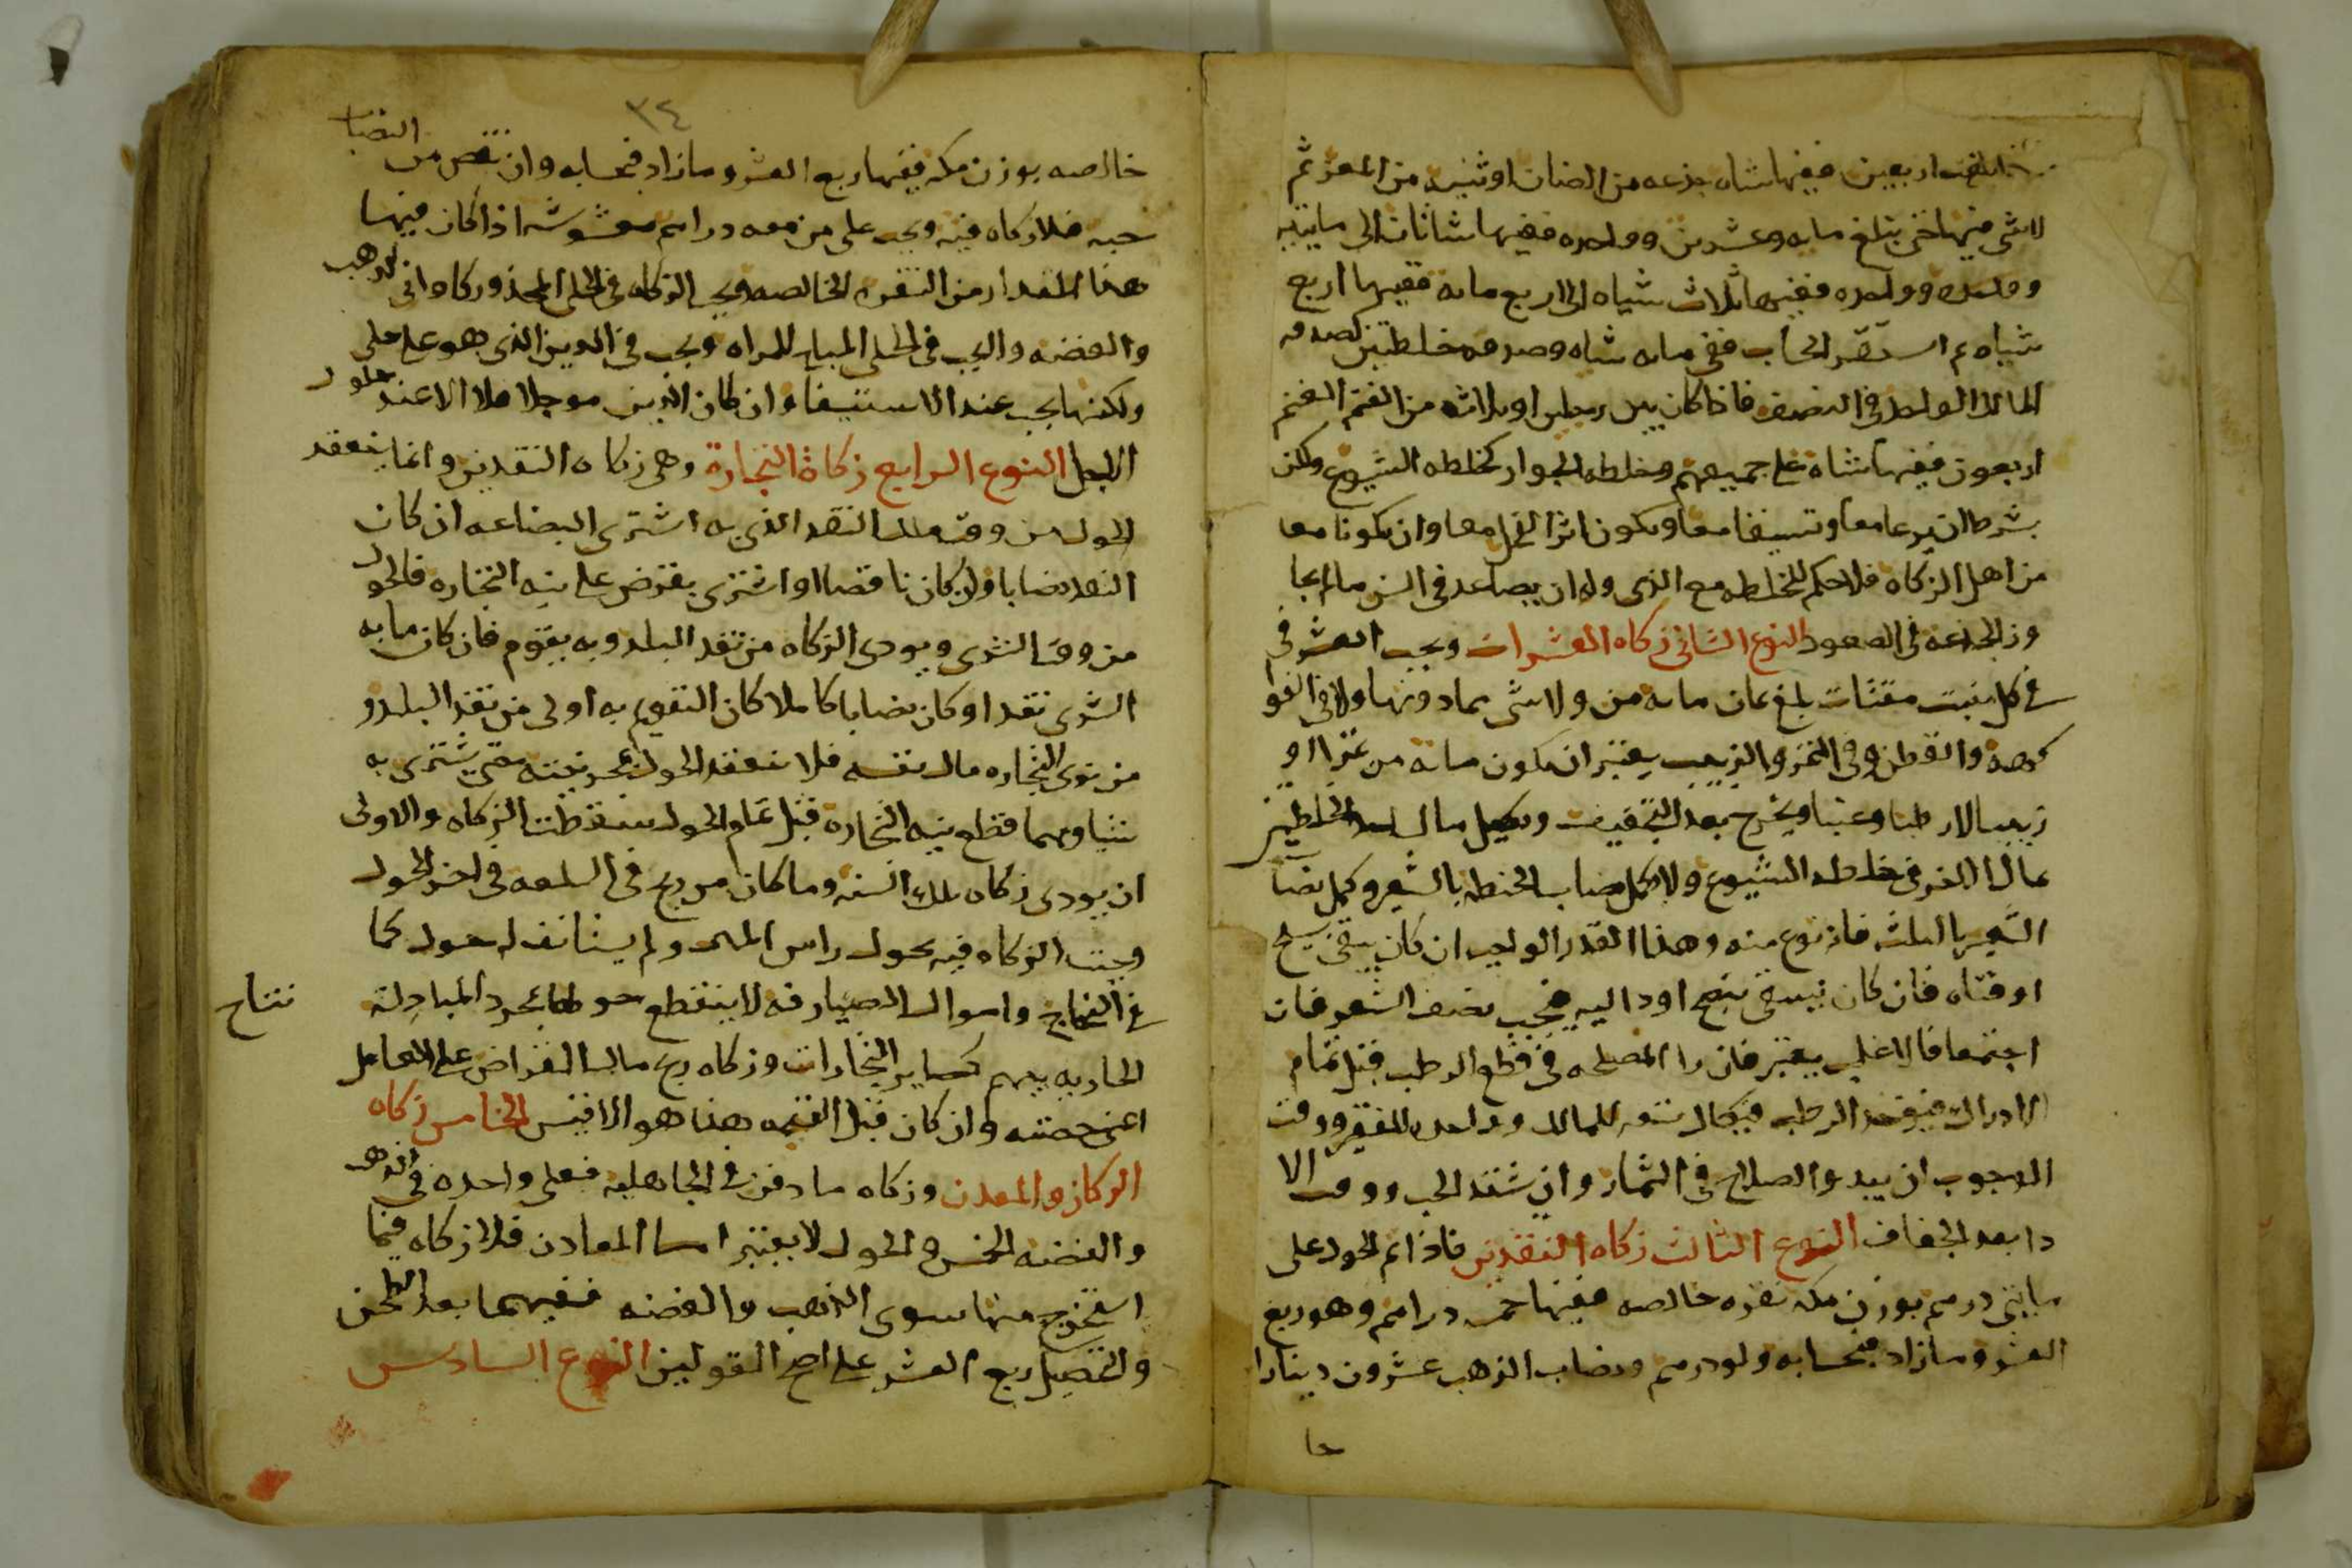 بلغت اربعين ففيها شاه جذعه من الضان او ثنيه من المعز ثم
لا شي فيها حتى يبلغ مايه وعشرين وواحده ففيها شاتان الى مايتين
وواحده ففيها ثلاث شياه الى اربع مايه ففيها اربع
شياه ثم استقر الحساب ففي كل مايه شاه وصدقه خليطين كصدقه
المالك الواحد في النصف فاذا كان بين رجلين او ثلاثه من الغنم الغنم
اربعون ففيها شاه على جميعهم وخلطه الجوار كخلطه الشيوع ولكن
بشرط ان يرعا معا وتسقا معا ويكون انزا الفحل معا وان يكونا معا
من اهل الزكاه فلا حكم للخلطه مع الذمي وله ان يصاعد في السن ما لم يجا
وز الجذعه في الصعود النوع الثاني زكاه العشرات ويجب العشر في
في كل نبت مقتات بلغ ثمان مايه من ولا شي بما دونها ولا في الفوا
كهه والقطن وفي التمر والزبيب يعتبر ان يكون مايه من تمرا او
زبيبا لا رطبا وعنبا ويخرج بعد التجفيف ويكمل مال احد الخليطين
بمال الاخر في خلطه الشيوع ولا يكمل نصاب الحنطه بالشعير وكمل نصا
الشعير بالسلت فانه نوع منه وهذا القدر الواجب ان كان يسقى بسيح
او قناه فان كان يسقى بنضح او داليه فيجب نصف العشر فان
اجتمعا فالاغلب يعتبر فان را المصلحه في قطع الرطب قبل تمام
الادراك فيوخذ الرطب فيكال تسعه للمالك وواحد للفقير ووقت
الوجوب ان يبدو الصلاح في الثمار وان يشتد الحب ووقت الا
دا بعد الجفاف النوع الثالث زكاه النقدين فاذا تم الحول على
مايتي درهم بوزن مكه نقره خالصه ففيها خمسه دراهم وهو ربع
العشر وما زاد فبحسابه ولو درهم ونصاب الذهب عشرون دينارا
خا
٣٤
خالصه بوزن مكه ففيها ربع العشر وما زاد فبحسابه وان نقص من النصاب
حبه فلا زكاه فيه ويجب على من معه دراهم مغشوشه اذا كان فيها
هذا المقدار من النقره الخالصه ويجب الزكاه في الحلي المحذور كاواني الذهب
والفضه ولا يجب في الحلي المباح للمراه ويجب في الدين الذي هو على ملي
ولكنها يجب عند الاستيفا وان كان الدين موجلا فلا الا عند حلول
الاجل النوع الرابع زكاة التجارة وهي زكاه النقدين وانما ينعقد
الحول من وقت ملك النقد الذي به اشترى البضاعه ان كان
النقد نصابا وان كان ناقصا او اشترى بعرض على نيه التجاره فالحول
من وقت الشرى ويودى الزكاه من نقد البلد وبه يقوم فان كان ما به
الشرى نقدا وكان نصابا كاملا كان التقويم به اولى من نقد البلد و
من نوى التجاره مال نفسه فلا ينعقد الحول بمجرد نيته حتى يشترى به
شيا ومهما قطع نيه التجاره قبل تمام الحول سقطت الزكاه والاولى
ان يودى زكاه تلك السنه وما كان من ربح في السلعه في اخر الحول
وجبت الزكاه فيه بحول راس المال ولم يستانف له حول كما
في النتاج واموال الصيارفه لا ينقطع حولها بمجرد المبادلة
نتاج
الجاريه بينهم كساير التجارات وزكاه ربح مال القراض على العامل
اعنى حصته وان كان قبل القسمه هذا هو الاقيس الخامس زكاه
الركاز والمعدن وزكاه ما دفن في الجاهليه فعلى واحده في الذهب
والفضه الخمس والحول لا يعتبر اما المعادن فلا زكاه فيما
استخرج منها سوى الذهب والفضه ففيهما بعد الطحن
والتحصيل ربع العشر على اصح القولين النوع السادس